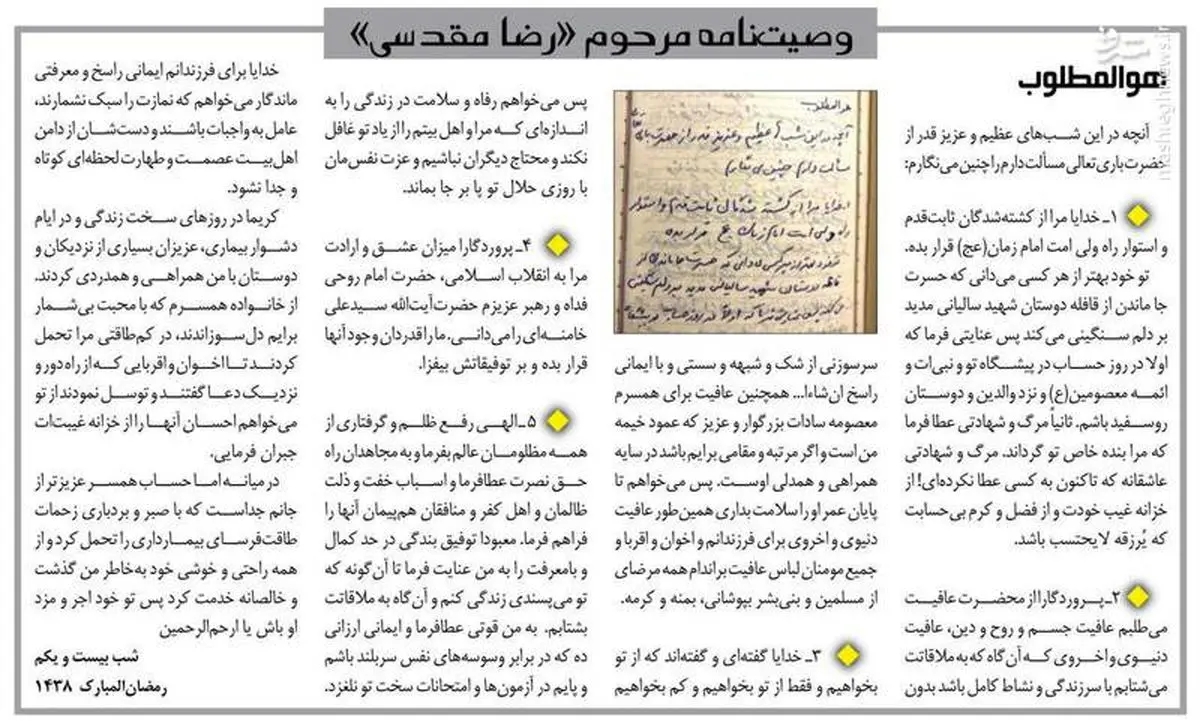 وصیت‌نامه مرحوم «رضا مقدسی»
هوالمطلوب
آنچه در این شب‌های عظیم و عزیز قدر از
حضرت باری‌تعالی مسألت دارم را چنین می‌نگارم:
۱ـ خدایا مرا از کشته‌شدگان ثابت‌قدم
و استوار راه ولی امت امام زمان(عج) قرار بده.
تو خود بهتر از هر کسی می‌دانی که حسرت
جا ماندن از قافله دوستان شهید سالیانی مدید
بر دلم سنگینی می‌کند پس عنایتی فرما که
اولا در روز حساب در پیشگاه تو و نبی‌ات و
ائمه معصومین(ع) و نزد والدین و دوستان
روسفید باشم. ثانیاً مرگ و شهادتی عطا فرما
که مرا بنده خاص تو گرداند. مرگ و شهادتی
عاشقانه که تاکنون به کسی عطا نکرده‌ای! از
خزانه غیب خودت و از فضل و کرم بی‌حسابت
که یُرزقه لایحتسب باشد.
۲ـ پروردگارا از محضرت عافیت
می‌طلبم عافیت جسم و روح و دین، عافیت
دنیوی و اخروی که آن گاه که به ملاقاتت
می‌شتابم با سرزندگی و نشاط کامل باشد بدون
هوالمطلوب
سرسوزنی از شک و شبهه و سستی و با ایمانی
راسخ ان شاءا... همچنین عافیت برای همسرم
معصومه سادات بزرگوار و عزیز که عمود خیمه
من است و اگر مرتبه و مقامی برایم باشد در سایه
همراهی و همدلی اوست. پس می‌خواهم تا
پایان عمر او را سلامت بداری همین‌طور عافیت
دنیوی و اخروی برای فرزندانم و اخوان و اقربا و
جمیع مومنان لباس عافیت بر اندام همه مرضای
از مسلمین و بنی‌بشر بپوشانی، بمنه و کرمه.
۳ـ خدایا گفته‌ای و گفته‌اند که از تو
بخواهیم و فقط از تو بخواهیم و کم بخواهیم
پس می‌خواهم رفاه و سلامت در زندگی را به
اندازه‌ای که مرا و اهل بیتم را از یاد تو غافل
نکند و محتاج دیگران نباشیم و عزت نفس‌مان
با روزی حلال تو پا بر جا بماند.
۴ـ پروردگارا میزان عشق و ارادت
مرا به انقلاب اسلامی، حضرت امام روحی
فداه و رهبر عزیزم حضرت‌آیت‌الله سیدعلی
خامنه‌ای را می‌دانی. ما را قدردان وجود آنها
قرار بده و بر توفیقاتش بیفزا.
۵ـ الهی رفع ظلم و گرفتاری از
همه مظلومان عالم بفرما و به مجاهدان راه
حق نصرت عطا فرما و اسباب خفت و ذلت
ظالمان و اهل کفر و منافقان هم‌پیمان آنها را
فراهم فرما. معبودا توفیق بندگی در حد کمال
و بامعرفت را به من عنایت فرما تا آن گونه که
تو می‌پسندی زندگی کنم و آن گاه به ملاقاتت
بشتابم. به من قوتی عطا فرما و ایمانی ارزانی
ده که در برابر وسوسه‌های نفس سربلند باشم
و پایم در آزمون‌ها و امتحانات سخت تو نلغزد.
خدایا برای فرزندانم ایمانی راسخ و معرفتی
ماندگار می‌خواهم که نمازت را سبک نشمارند،
عامل به واجبات باشند و دست‌شان از دامن
اهل‌بیت عصمت و طهارت لحظه‌ای کوتاه
و جدا نشود.
کریما در روزهای سخت زندگی و در ایام
دشوار بیماری، عزیزان بسیاری از نزدیکان و
دوستان با من همراهی و همدردی کردند.
از خانواده همسرم که با محبت بی‌شمار
برایم دل سوزاندند، در کم‌طاقتی مرا تحمل
کردند تا اخوان و اقربایی که از راه دور و
نزدیک دعا گفتند و توسل نمودند از تو
می‌خواهم احسان آنها را از خزانه غیبت‌ات
جبران فرمایی.
در میانه اما حساب همسر عزیزتر از
جانم جداست که با صبر و بردباری زحمات
طاقت‌فرسای بیمارداری را تحمل کرد و از
همه راحتی و خوشی خود به‌خاطر من گذشت
و خالصانه خدمت کرد پس تو خود اجر و مزد
او باش یا ارحم‌الرحمین
شب بیست و یکم
رمضان‌المبارک ۱۴۳۸
mashreghnews.ir